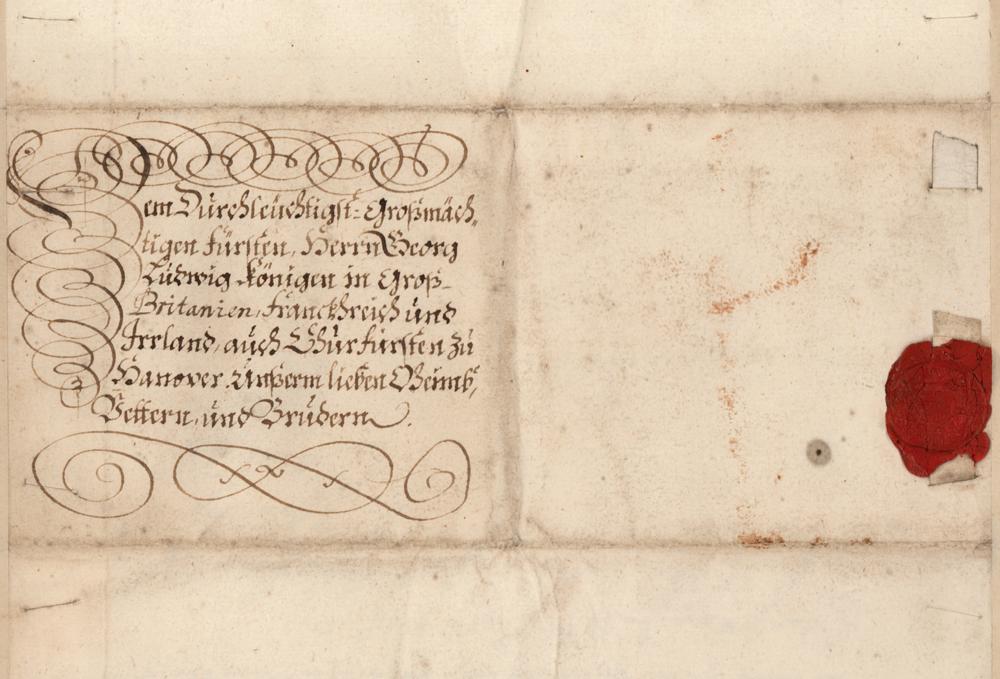 Dem Durchleuchtigst-Großmäch-
tigen Fürsten, Herrn Georg
Ludwig Königen in Groß-
Britanien, Franckhreich und
Irrland, auch Churfürsten zu
Hanover, Unßerm lieben Oheimb,
Vettern, und Brüdern.